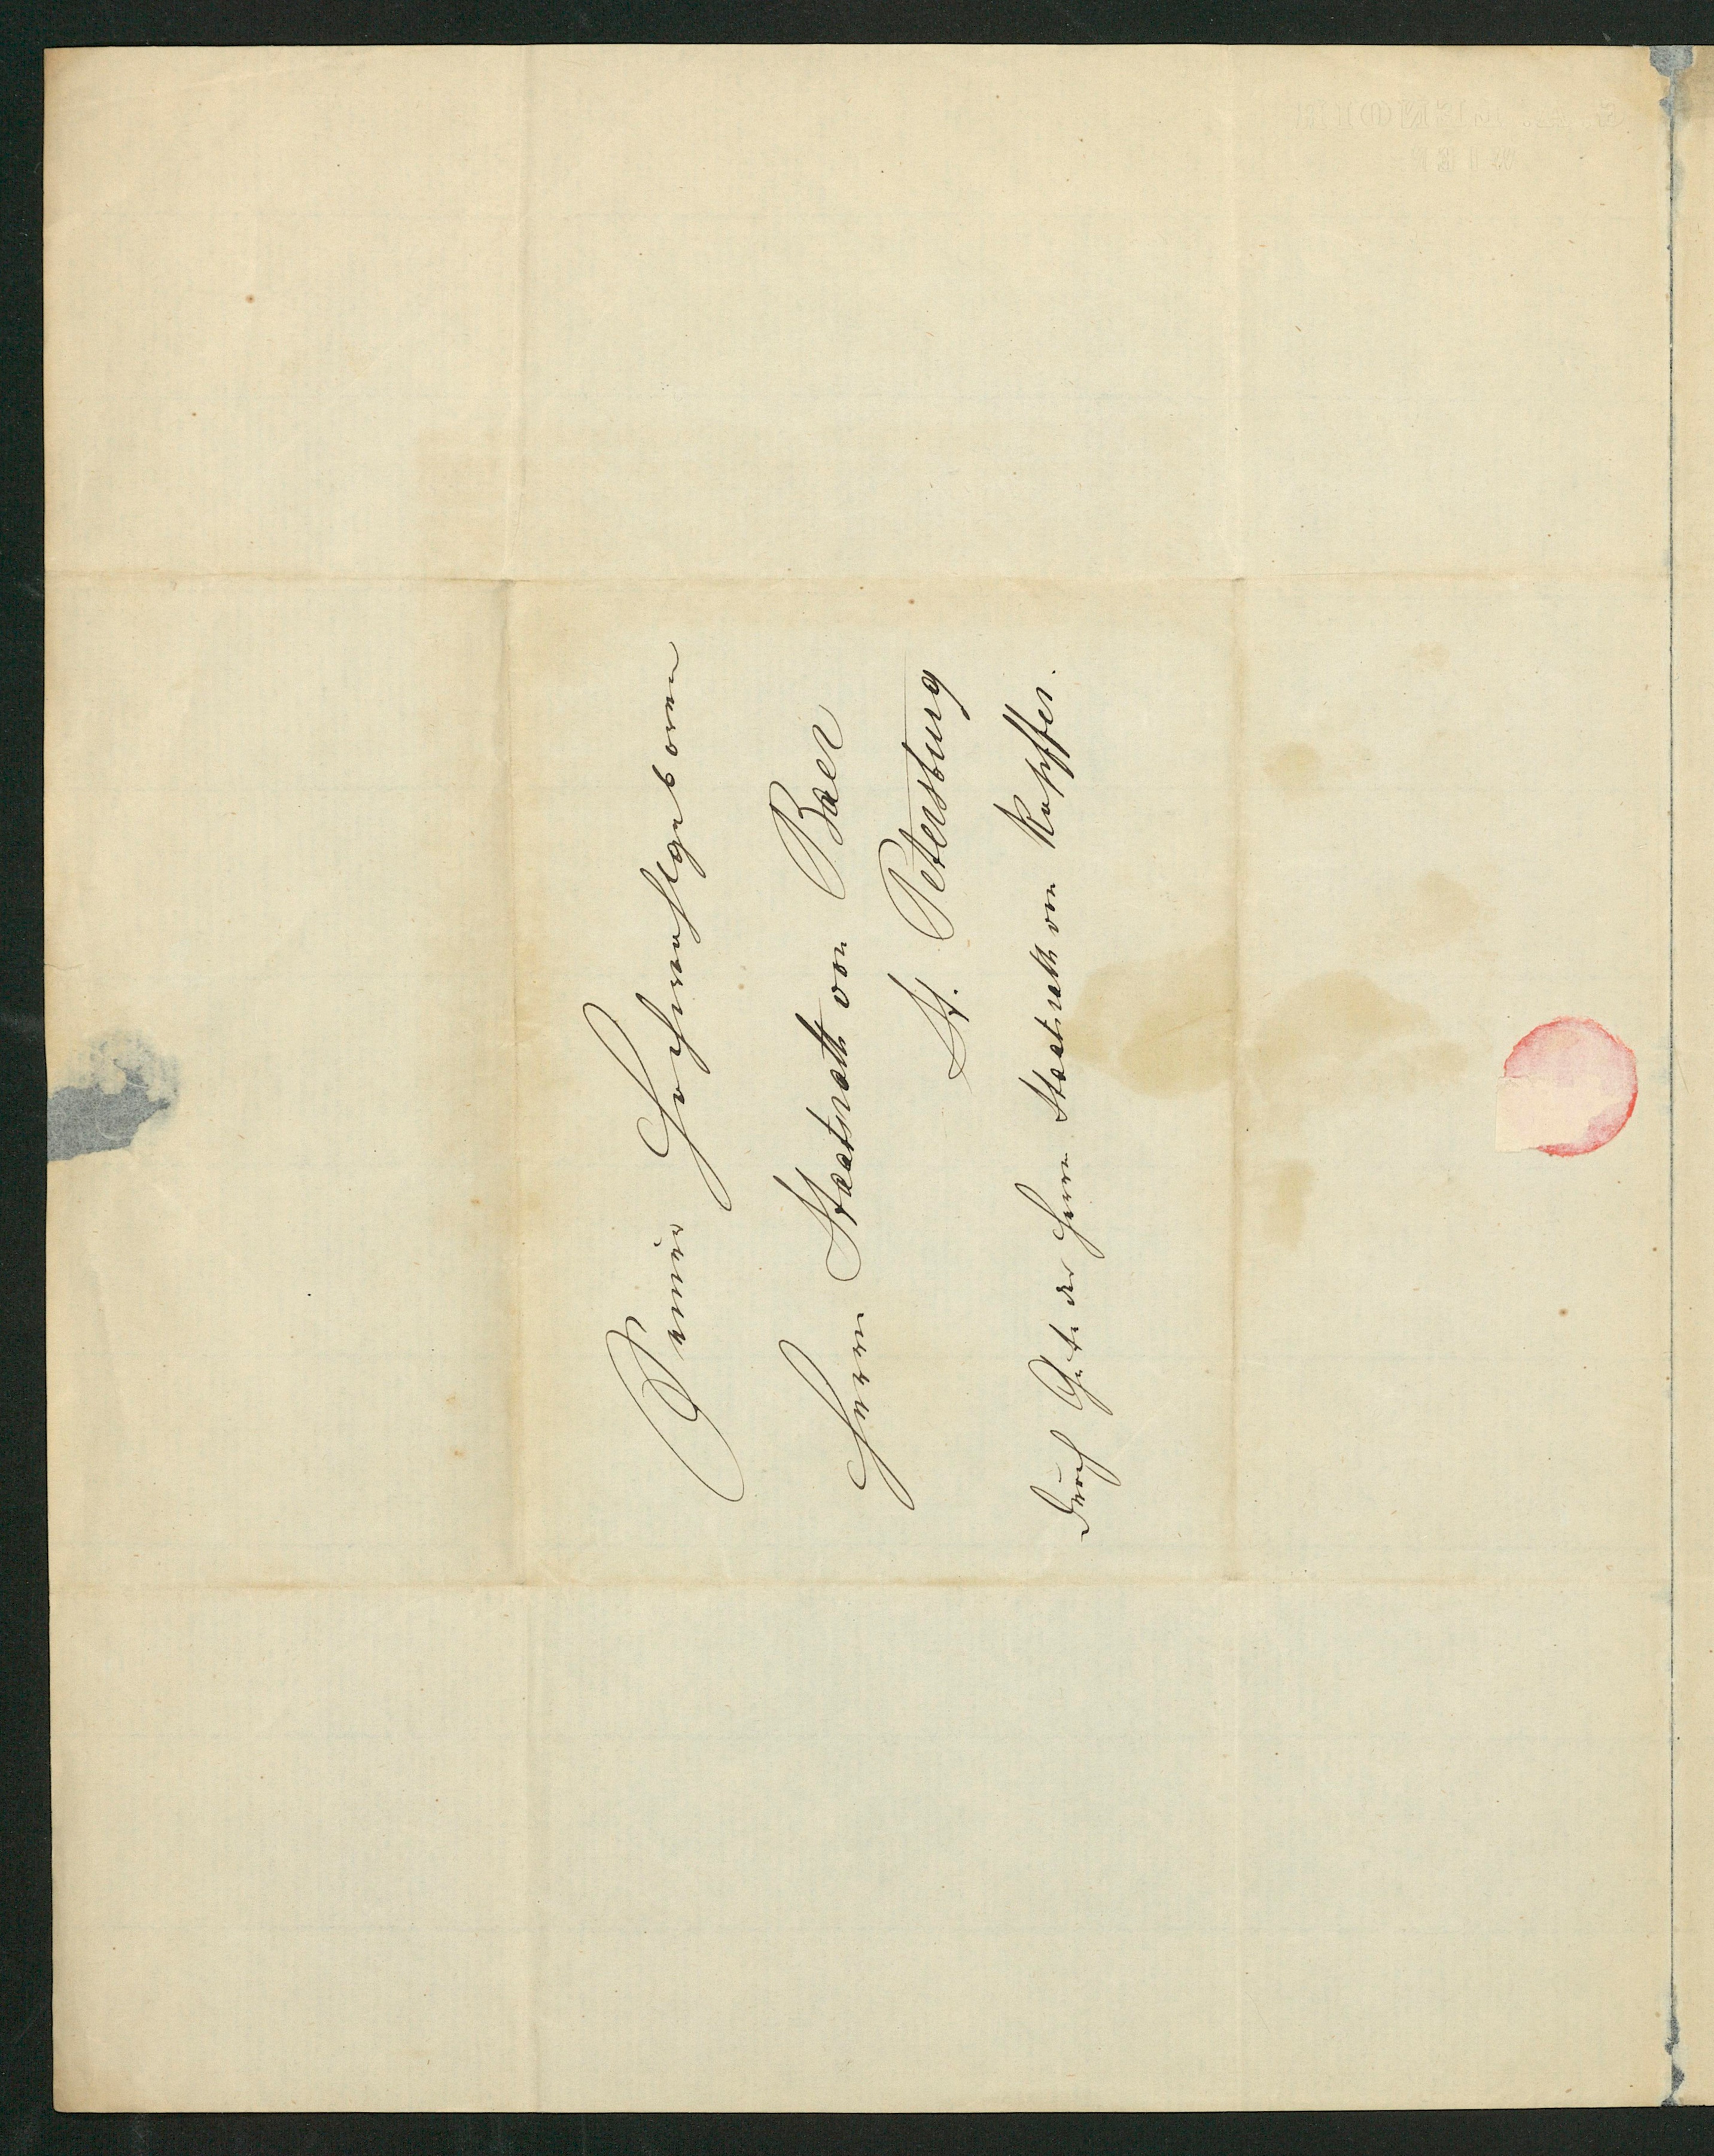 Seiner Hochwohlgeboren
Herrn Staatsrath von Baer
St. Petersburg
durch Güte des Herrn Staatsrath von Kupffer.